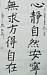 心靜自然安寧
無求方得自在